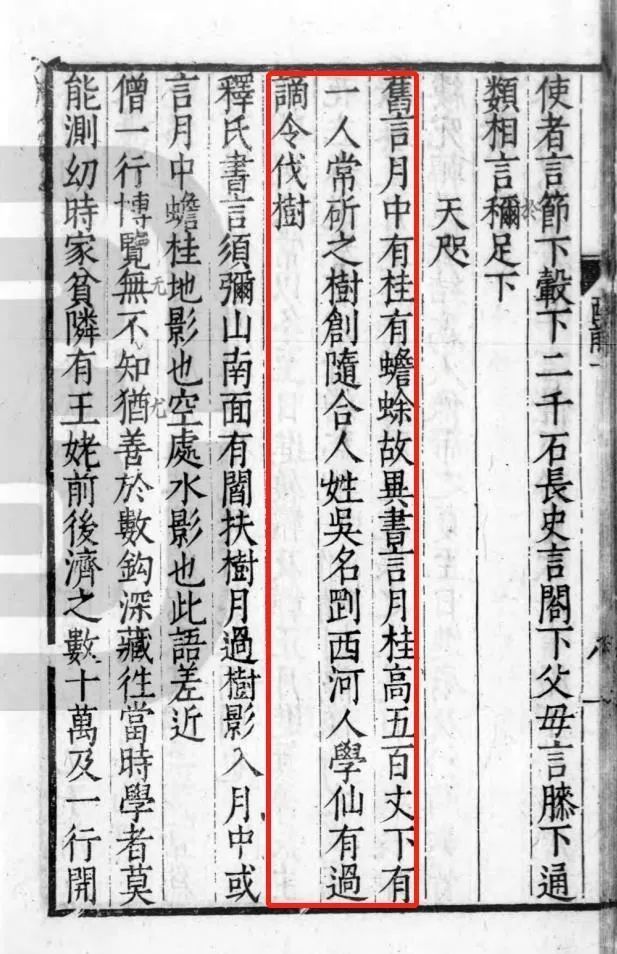 使者言節下轂下二千石長史言閤下父毋言膝下通
類相言稱於足下
天咫
舊言月中有桂有蟾蜍故異書言月桂高五百丈下有
一人常斫之樹創隨合人姓吳名剛西河人學仙有過
謫令伐樹
釋氏書言須彌山南面有閻扶樹月過樹影入月中或
言月中蟾桂地影也空處水影也此語差近
僧一行博覽無不知猶善於數鈎深藏徃當時學者莫
能測幼時家貧隣有王姥前後濟之數十萬及一行開